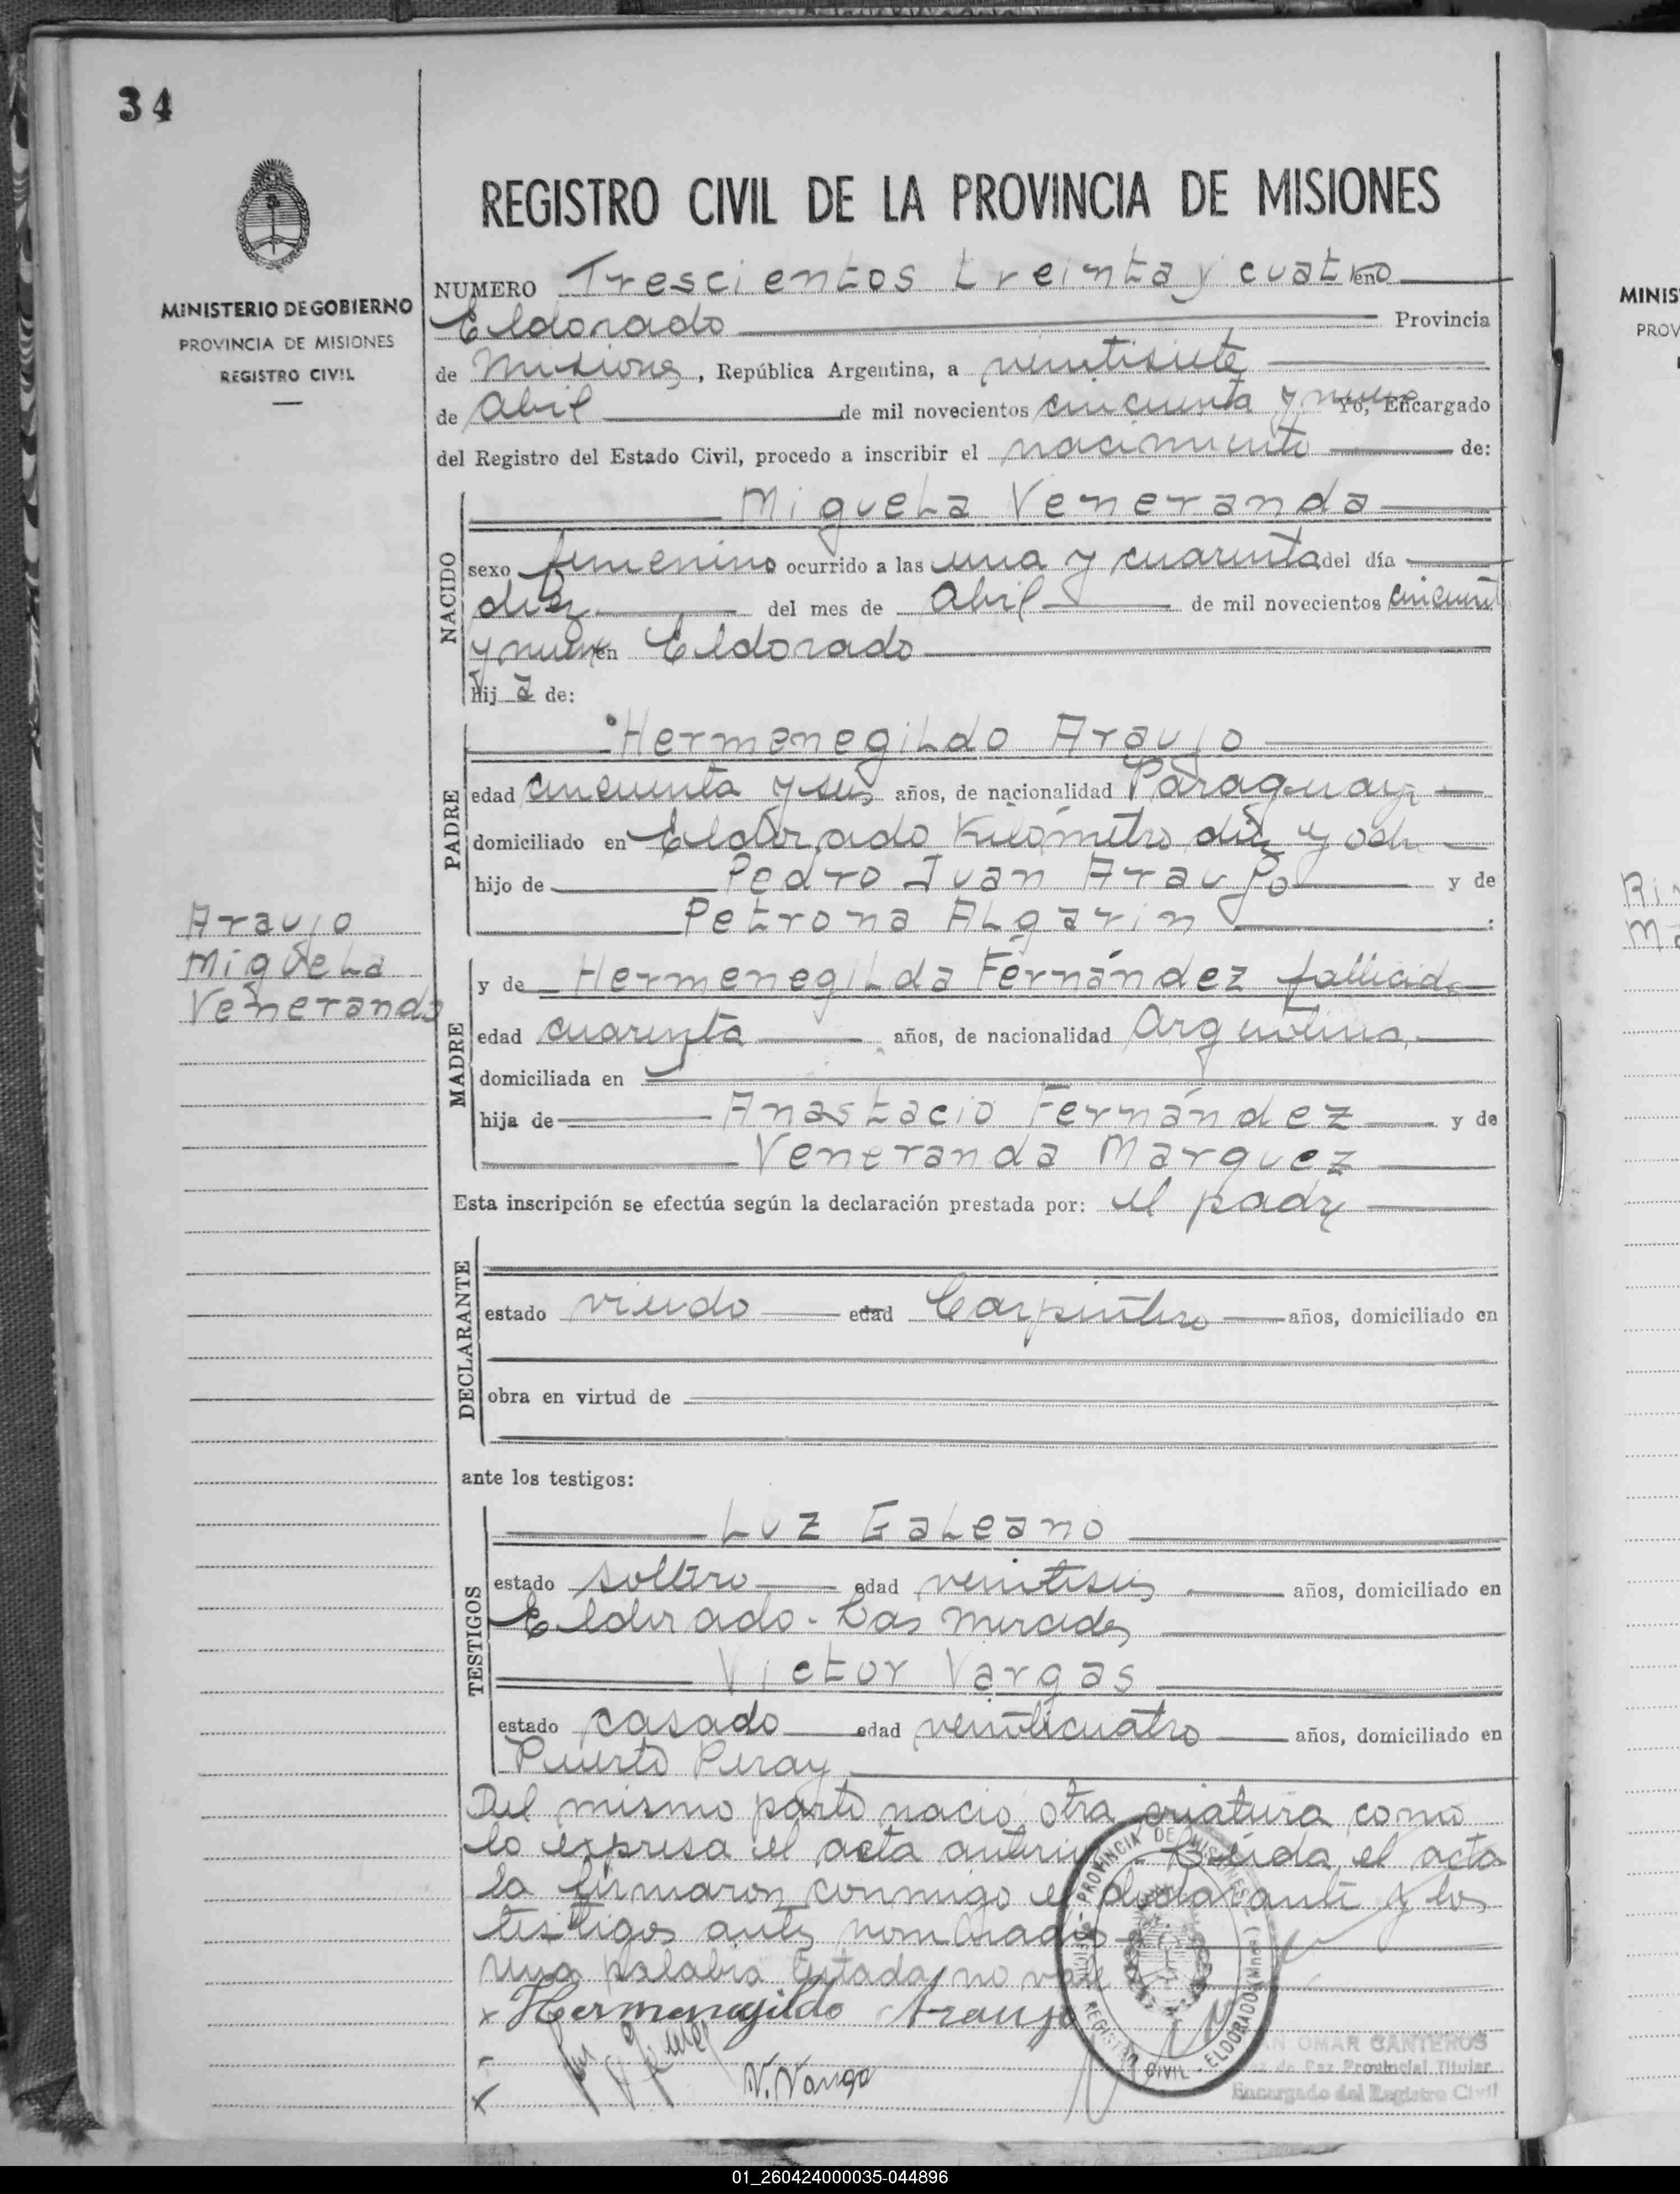 34
MINISTERIO DE GOBIERNO
PROVINCIA DE MISIONES
REGISTRO CIVIL
REGISTRO CIVIL DE LA PROVINCIA DE MISIONES
NUMERO Trescientos treinta y cuatro en
Eldorado Provincia
de Misiones, República Argentina, a veintisiete
de abril de mil novecientos cincuenta y nueve Yo, Encargado
del Registro del Estado Civil, procedo a inscribir el nacimiento de:
NACIDO
Miguela Veneranda
sexo femenino ocurrido a las una y cuarenta del día
diez del mes de abril de mil novecientos cincuenta
y nueve en Eldorado
hija de:
PADRE
Hermenegildo Araujo
edad cincuenta y seis años, de nacionalidad Paraguay
domiciliado en Eldorado Kilómetro diez y ocho
hijo de Pedro Juan Araujo y de
Petrona Algarin :
Araujo
Miguela
Veneranda
MADRE
y de Hermenegilda Fernández fallecida
edad cuarenta años, de nacionalidad Argentina
domiciliada en
hija de Anastacio Fernández y de
Veneranda Marquez
Esta inscripción se efectúa según la declaración prestada por: el padre
DECLARANTE
estado viudo edad Carpintero años, domiciliado en
obra en virtud de
ante los testigos:
TESTIGOS
Luz Galeano
estado soltero edad veintiseis años, domiciliado en
Eldorado - Las Mercedes
Victor Vargas
estado casado edad veinticuatro años, domiciliado en
Puerto Piray
Del mismo parto nacio otra criatura como
lo expresa el acta anterior - Leida el acta
la firmaron conmigo el declarante y los
testigos antes nombrados
una palabra testada no vale
x Hermenegildo Araujo
V. Vargas
PROVINCIA DE MISIONES
REGISTRO CIVIL - ELDORADO (Mnes)
OMAR CANTEROS
de Paz Provincial Titular
Encargado del Registro Civil
MINIS
PROV
01_260424000035-044896